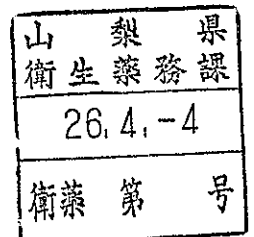 山梨県
衛生薬務課
26.4.-4
衛薬第 号